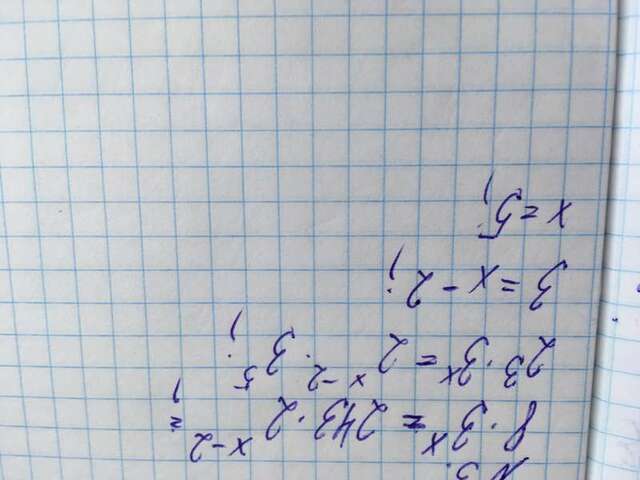 N3.
8·3^x = 243·2^x-2;
2^3·3^x = 2^x-2·3^5;
3 = x - 2;
x = 5;